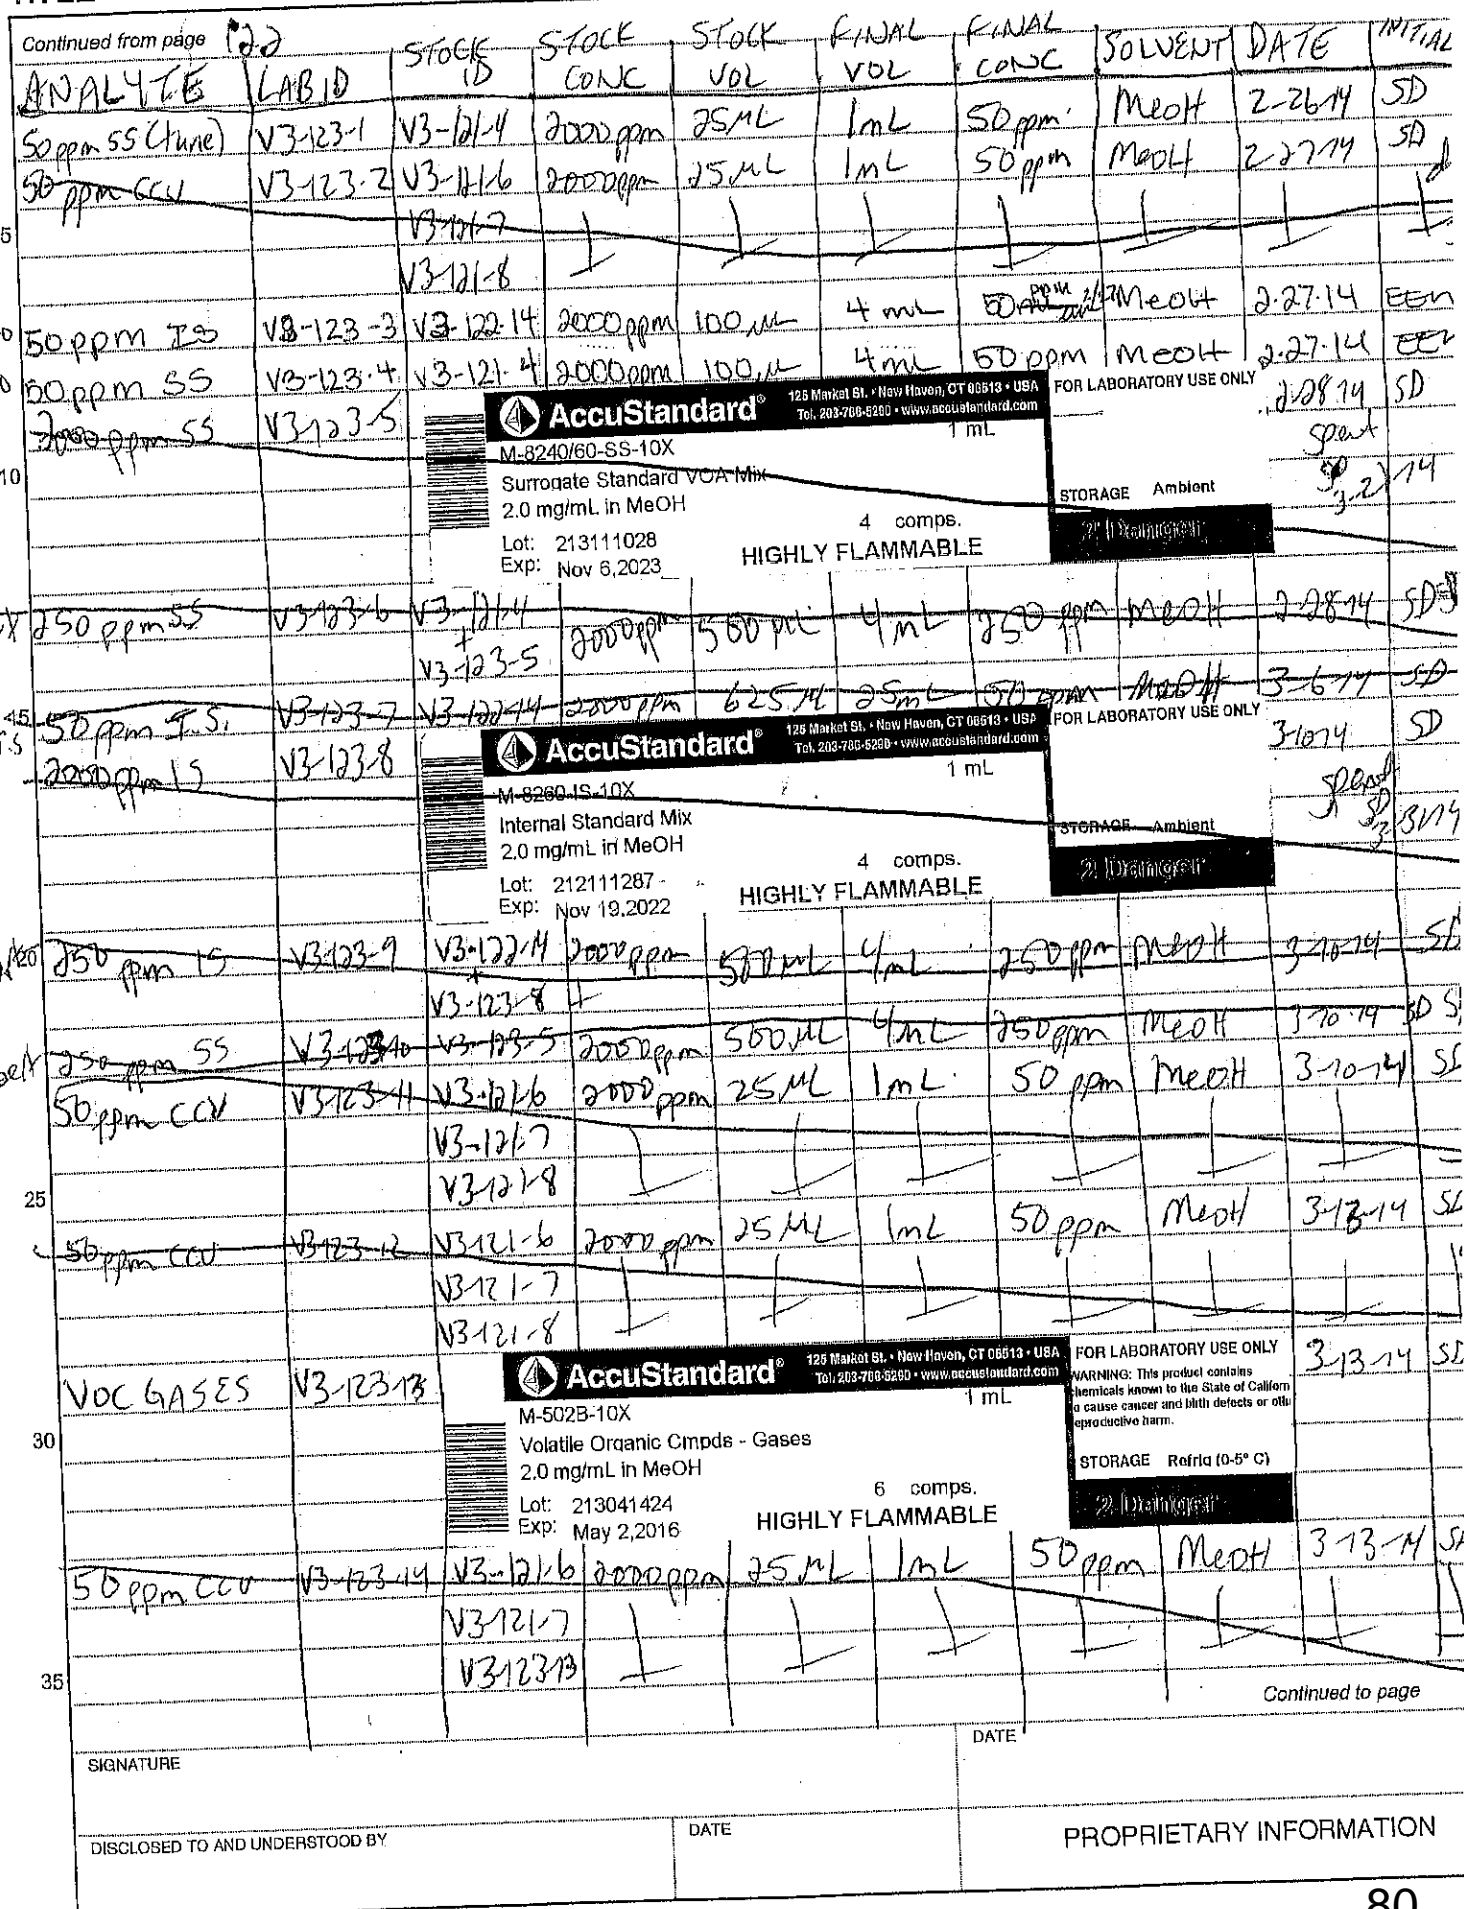 Continued from page 122
ANALYTE LAB ID STOCK ID STOCK CONC STOCK VOL FINAL VOL FINAL CONC SOLVENT DATE INITIAL
50 ppm SS (tune) V3-123-1 V3-121-4 2000 ppm 25 µL 1 mL 50 ppm MeOH 2-26-14 SD
50 ppm CCV V3-123-2 V3-121-6 2000 ppm 25 µL 1 mL 50 ppm MeOH 2-27-14 SD
5 V3-121-7
V3-121-8
50 ppm IS V3-123-3 V3-122-14 2000 ppm 100 µL 4 mL 50 ppm MeOH 2-27-14 EEM
50 ppm SS V3-123-4 V3-121-4 2000 ppm 100 µL 4 mL 50 ppm MeOH 2-27-14
2000 ppm SS V3-123-5 2-28-14 SD
spent
SD
AccuStandard®
125 Market St. • New Haven, CT 06513 • USA
Tel. 203-786-5290 • www.accustandard.com
FOR LABORATORY USE ONLY
1 mL
M-8240/60-SS-10X
Surrogate Standard VOA Mix
2.0 mg/mL in MeOH
STORAGE Ambient
4 comps.
2 Danger
Lot: 213111028
HIGHLY FLAMMABLE
Exp: Nov 6,2023
10
250 ppm SS V3-123-6 V3-121-4 2000 ppm 500 µL 4 mL 250 ppm MeOH 2-28-14 SD
+
V3-123-5
50 ppm I.S. V3-123-7 V3-122-14 2000 ppm 625 µL 25 mL 50 ppm MeOH 3-6-14 SD
2000 ppm IS V3-123-8 3-10-14 SD
spent
SD
AccuStandard®
125 Market St. • New Haven, CT 06513 • USA
Tel. 203-786-5290 • www.accustandard.com
FOR LABORATORY USE ONLY
1 mL
M-8260-IS-10X
Internal Standard Mix
2.0 mg/mL in MeOH
STORAGE Ambient
4 comps.
2 Danger
Lot: 212111287
HIGHLY FLAMMABLE
Exp: Nov 19,2022
20 250 ppm IS V3-123-9 V3-122-14 2000 ppm 500 µL 4 mL 250 ppm MeOH 3-10-14 SD
+
V3-123-8
250 ppm SS V3-123-10 V3-123-5 2000 ppm 500 µL 4 mL 250 ppm MeOH 3-10-14 SD
50 ppm CCV V3-123-11 V3-121-6 2000 ppm 25 µL 1 mL 50 ppm MeOH 3-10-14
V3-121-7
25 V3-121-8
50 ppm CCV V3-123-12 V3-121-6 2000 ppm 25 µL 1 mL 50 ppm MeOH 3-13-14
V3-121-7
V3-121-8
VOC GASES V3-123-13 3-13-14 SD
AccuStandard®
125 Market St. • New Haven, CT 06513 • USA
Tel. 203-786-5290 • www.accustandard.com
FOR LABORATORY USE ONLY
WARNING: This product contains
chemicals known to the State of Californ
o cause cancer and birth defects or othe
eproductive harm.
1 mL
M-502B-10X
30 Volatile Organic Cmpds - Gases
2.0 mg/mL in MeOH
STORAGE Refrig (0-5° C)
6 comps.
2 Danger
Lot: 213041424
HIGHLY FLAMMABLE
Exp: May 2,2016
50 ppm CCV V3-123-14 V3-121-6 2000 ppm 25 µL 1 mL 50 ppm MeOH 3-13-14
V3-121-7
35 V3-123-13
Continued to page
SIGNATURE
DATE
DISCLOSED TO AND UNDERSTOOD BY
DATE
PROPRIETARY INFORMATION
80